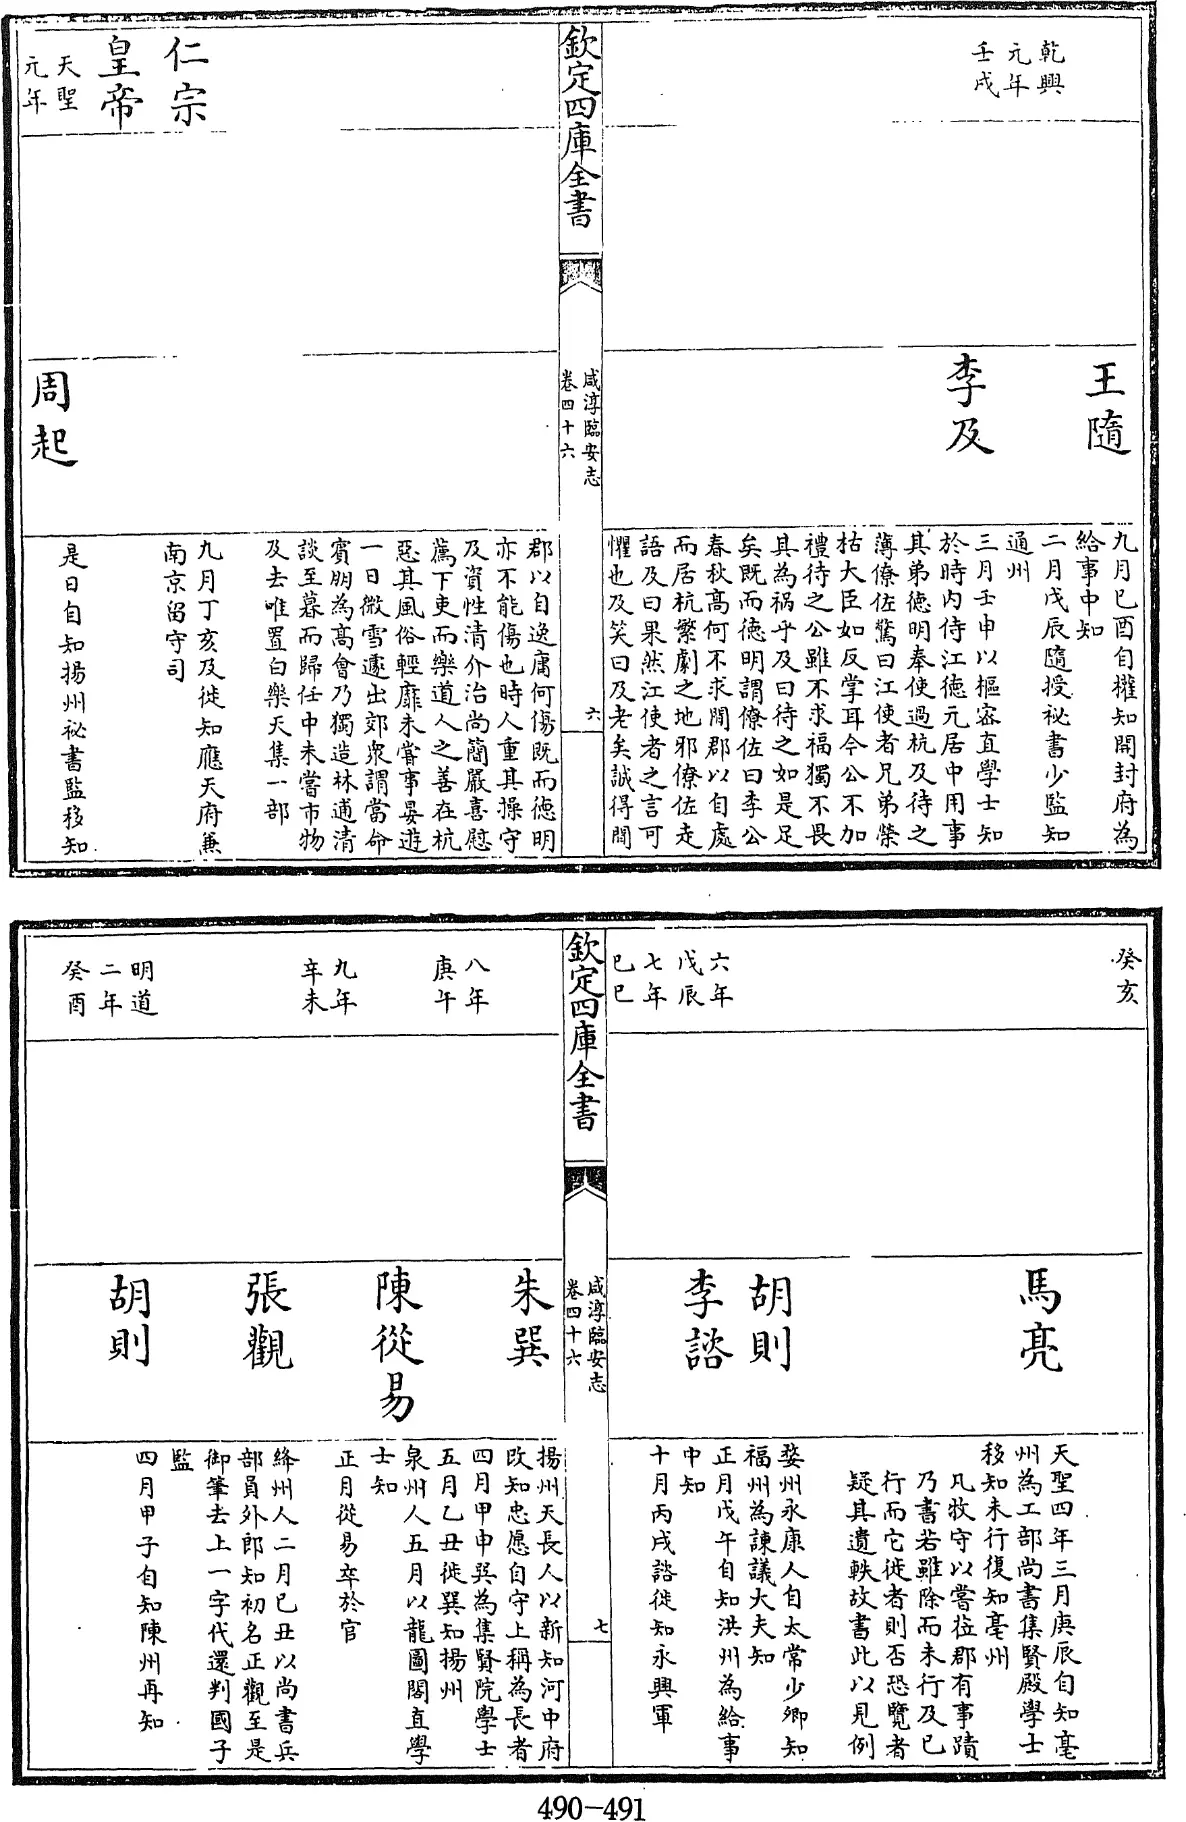 乾興
元年
壬戌
王隨
李及
九月己酉自權知開封府為
給事中知
二月戊辰隨授秘書少監知
通州
三月壬申以樞密直學士知
於時内侍江德元居中用事
其弟德明奉使過杭及待之
薄僚佐驚曰江使者兄弟榮
枯大臣如反掌耳今公不加
禮待之公雖不求福獨不畏
其為禍乎及曰待之如是足
矣既而德明謂僚佐曰李公
春秋高何不求閒郡以自處
而居杭繁劇之地邪僚佐走
語及曰果然江使者之言可
懼也及笑曰及老矣誠得閒
欽定四庫全書
咸淳臨安志
卷四十六
六
郡以自逸庸何傷既而德明
亦不能傷也時人重其操守
及資性清介治尚簡嚴喜慰
薦下吏而樂道人之善在杭
惡其風俗輕靡未嘗事晏遊
一日微雪遽出郊衆謂當命
賓朋為髙會乃獨造林逋清
談至暮而歸任中未嘗市物
及去唯置白樂天集一部
九月丁亥及徙知應天府兼
南京留守司
仁宗
皇帝
天聖
元年
周起
是日自知揚州祕書監移知
癸亥
馬亮
天聖四年三月庚辰自知亳
州為工部尚書集賢殿學士
移知未行復知亳州
凡牧守以嘗蒞郡有事蹟
乃書若雖除而未行及已
行而它徙者則否恐覽者
疑其遺軼故書此以見例
六年
戊辰
七年
己巳
胡則
李諮
婺州永康人自太常少卿知
福州為諫議大夫知
正月戊午自知洪州為給事
中知
十月丙戌諮徙知永興軍
欽定四庫全書
咸淳臨安志
卷四十六
七
八年
庚午
九年
辛未
明道
二年
癸酉
朱巽
陳從易
張觀
胡則
揚州天長人以新知河中府
改知忠愿自守上稱為長者
四月甲申巽為集賢院學士
五月乙丑徙巽知揚州
泉州人五月以龍圖閣直學
士知
正月從易卒於官
絳州人二月己丑以尚書兵
部員外郎知初名正觀至是
御筆去上一字代還判國子
監
四月甲子自知陳州再知
490-491